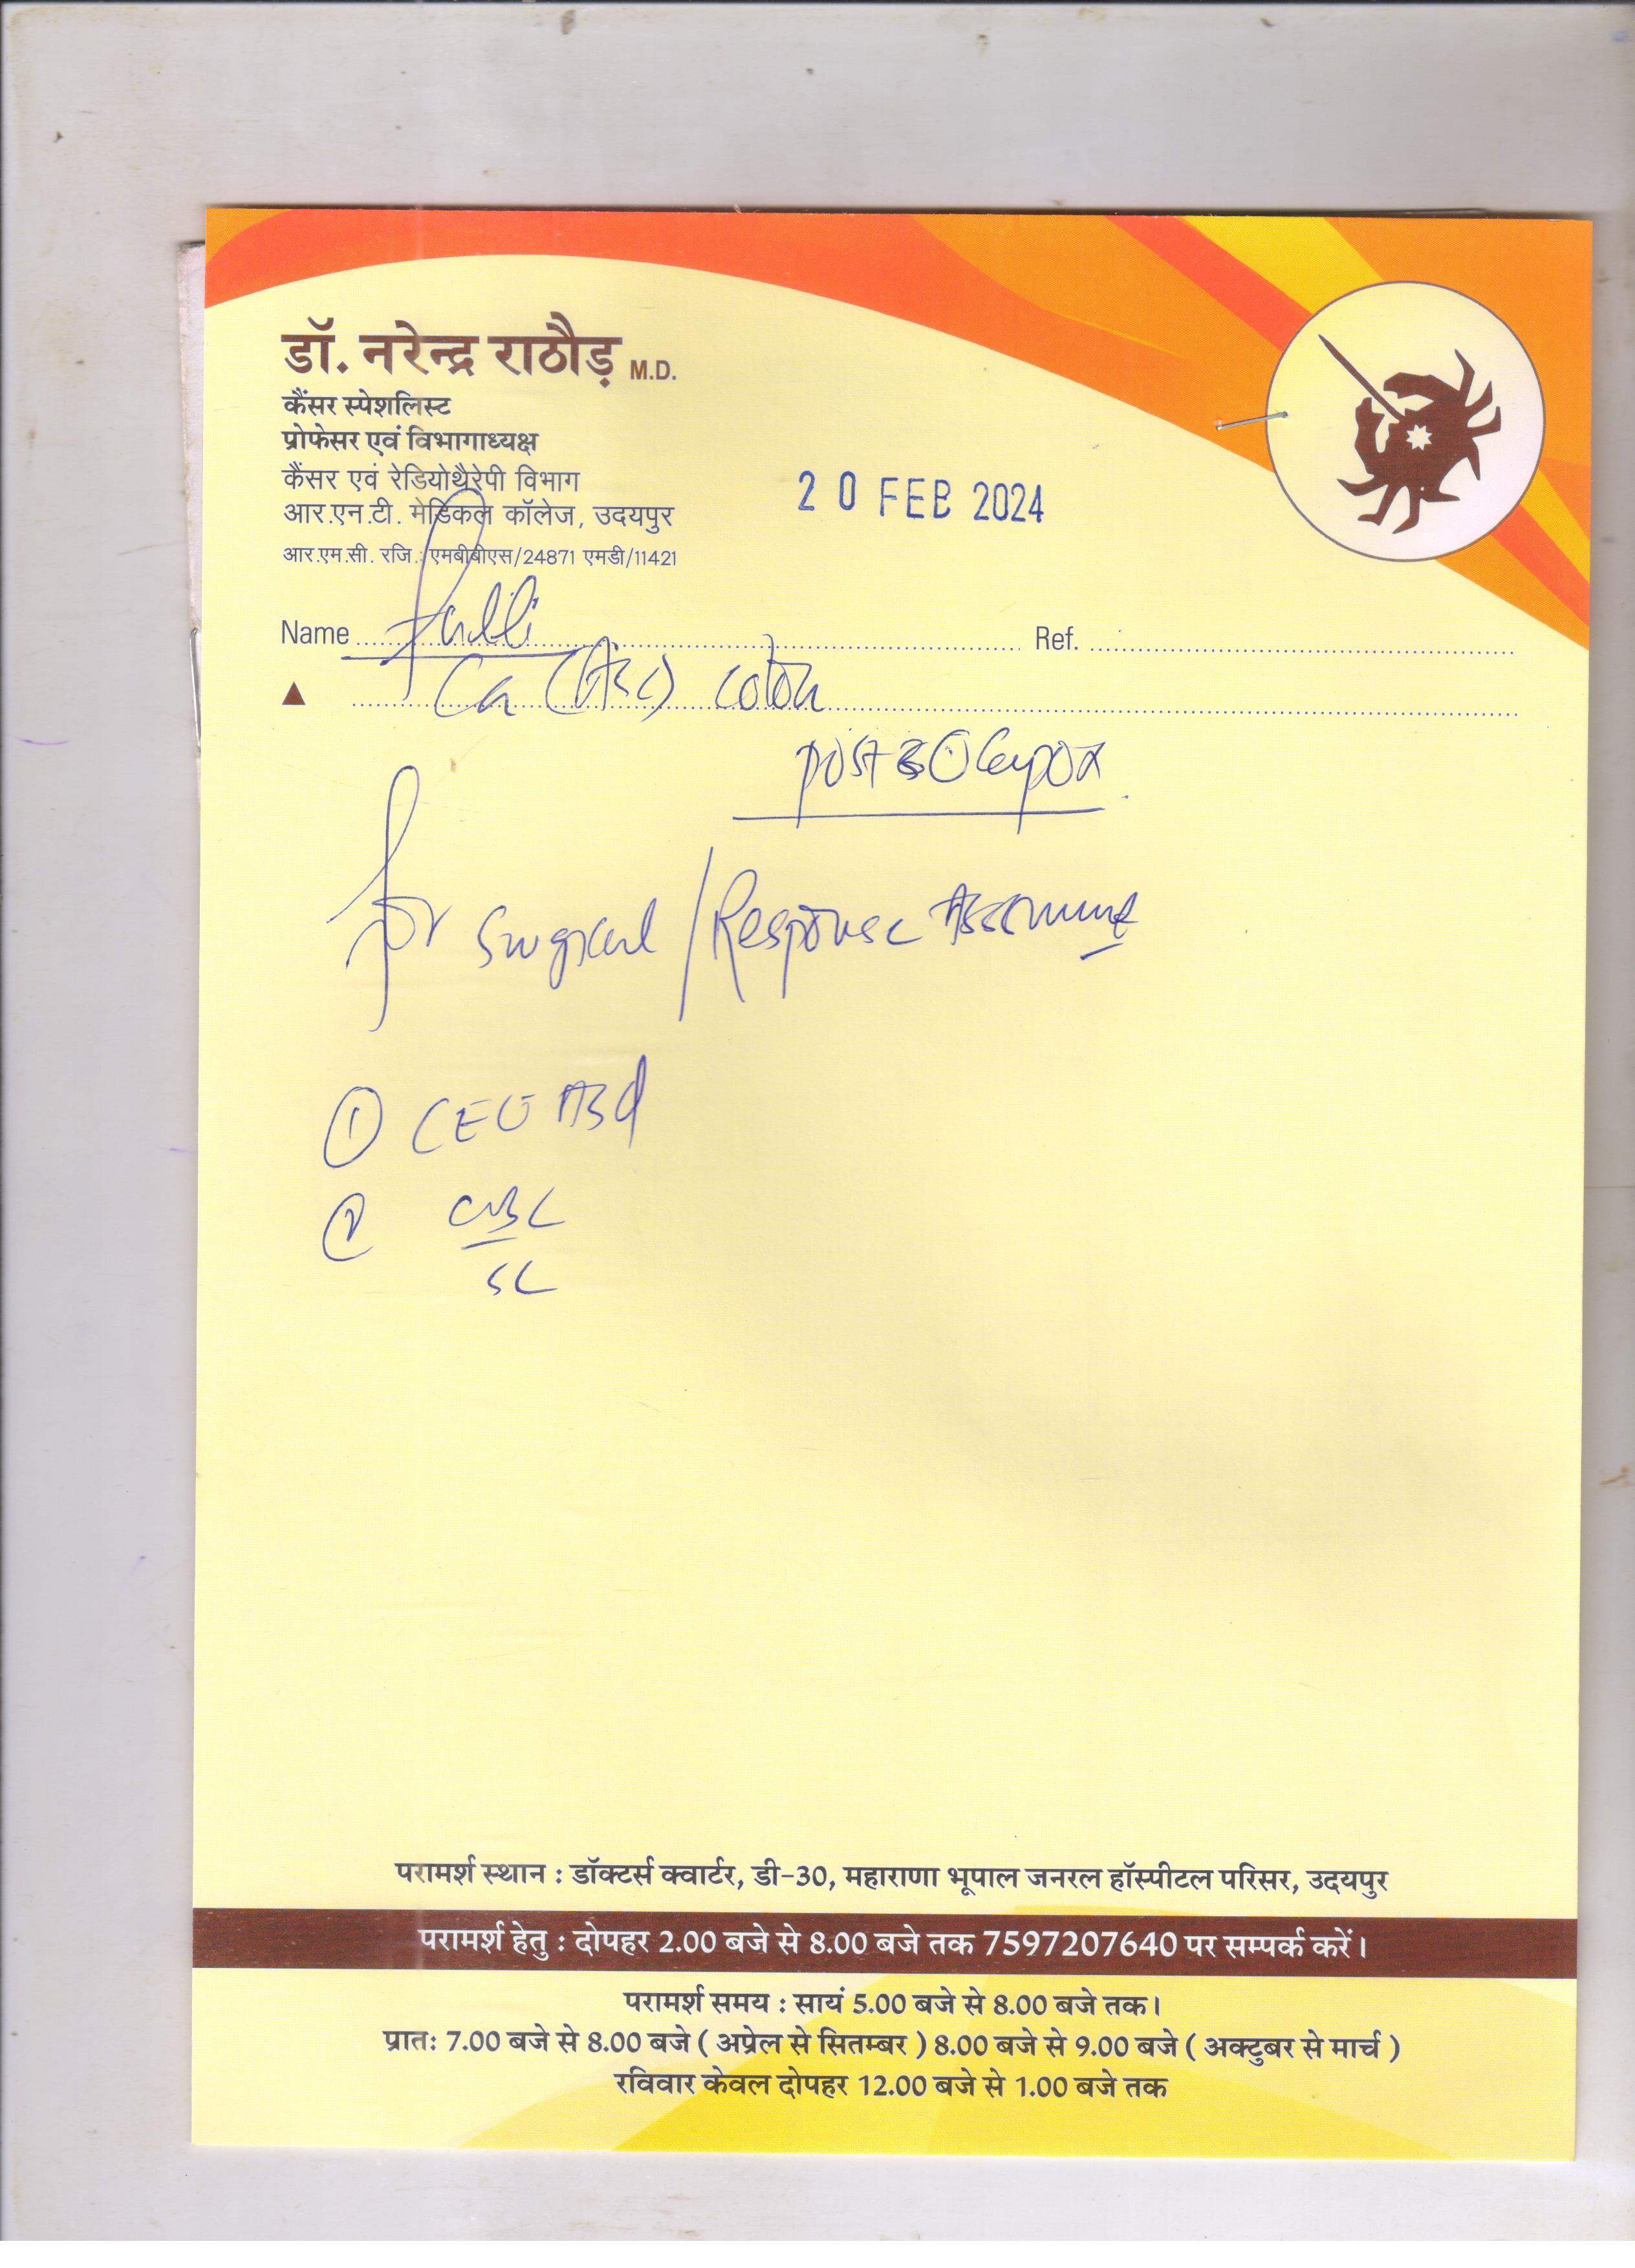 डॉ. नरेन्द्र राठौड़ M.D.
कैंसर स्पेशलिस्ट
प्रोफेसर एवं विभागाध्यक्ष
कैंसर एवं रेडियोथैरेपी विभाग
आर.एन.टी. मेडिकल कॉलेज, उदयपुर
आर.एम.सी. रजि.: एमबीबीएस/24871 एमडी/11421
20 FEB 2024
Name Ref.
Ca (Asc) colon
post 3
for surgical / Response Assessment
① Abd
② CBC
परामर्श स्थान : डॉक्टर्स क्वार्टर, डी-30, महाराणा भूपाल जनरल हॉस्पीटल परिसर, उदयपुर
परामर्श हेतु : दोपहर 2.00 बजे से 8.00 बजे तक 7597207640 पर सम्पर्क करें।
परामर्श समय : सायं 5.00 बजे से 8.00 बजे तक।
प्रातः 7.00 बजे से 8.00 बजे ( अप्रेल से सितम्बर ) 8.00 बजे से 9.00 बजे ( अक्टुबर से मार्च )
रविवार केवल दोपहर 12.00 बजे से 1.00 बजे तक